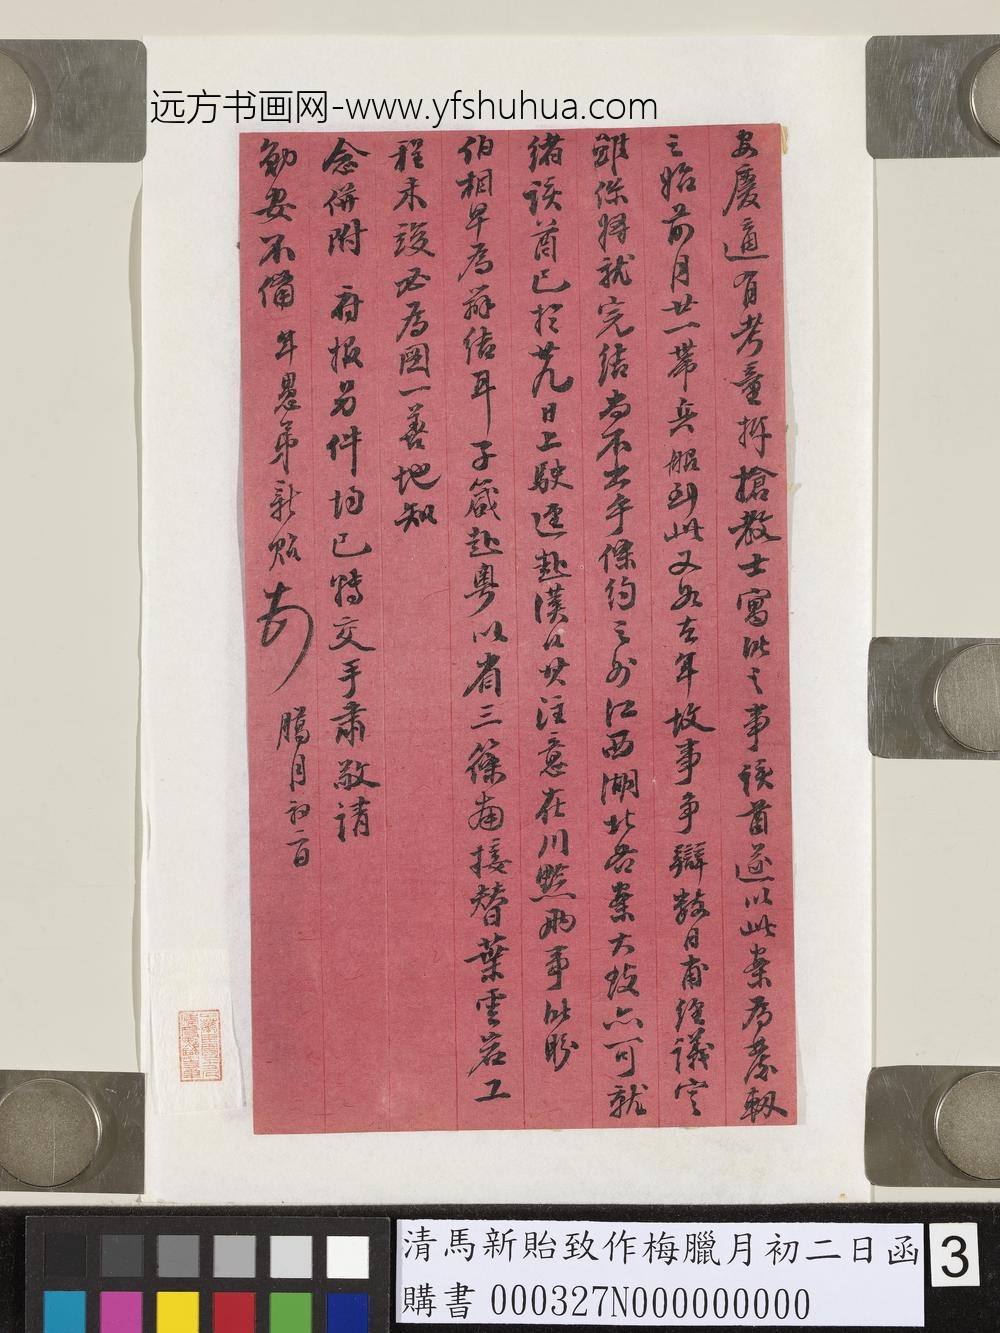 远方书画网-www.yfshuhua.com
安慶適有考童掽搶教士寓此之事該酋遂以此案為發軔
之始前月廿一帶兵船到此又如去年故事爭辯數日甫經議定
雖係將就完結尚不出乎條約之外江西湖北各案大致亦可就
緒該酋已於廿九日上駛逕赴漢口其注意在川黔兩事此盼
伯相早為辦結耳子箴赴粵以省三篠南接替葉雲岩工
程未竣必為圖一善地知
念併附 府報另件均已轉交手肅敬請
勛安不備 年愚弟新貽 臘月初二日
清馬新貽致作梅臘月初二日函
購書 000327N000000000
3